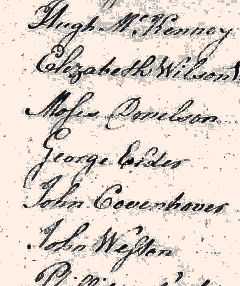 Hugh McKenney
Elizabeth Wilson
Moses Donelson
George Calder
John Covenhover
John Weston